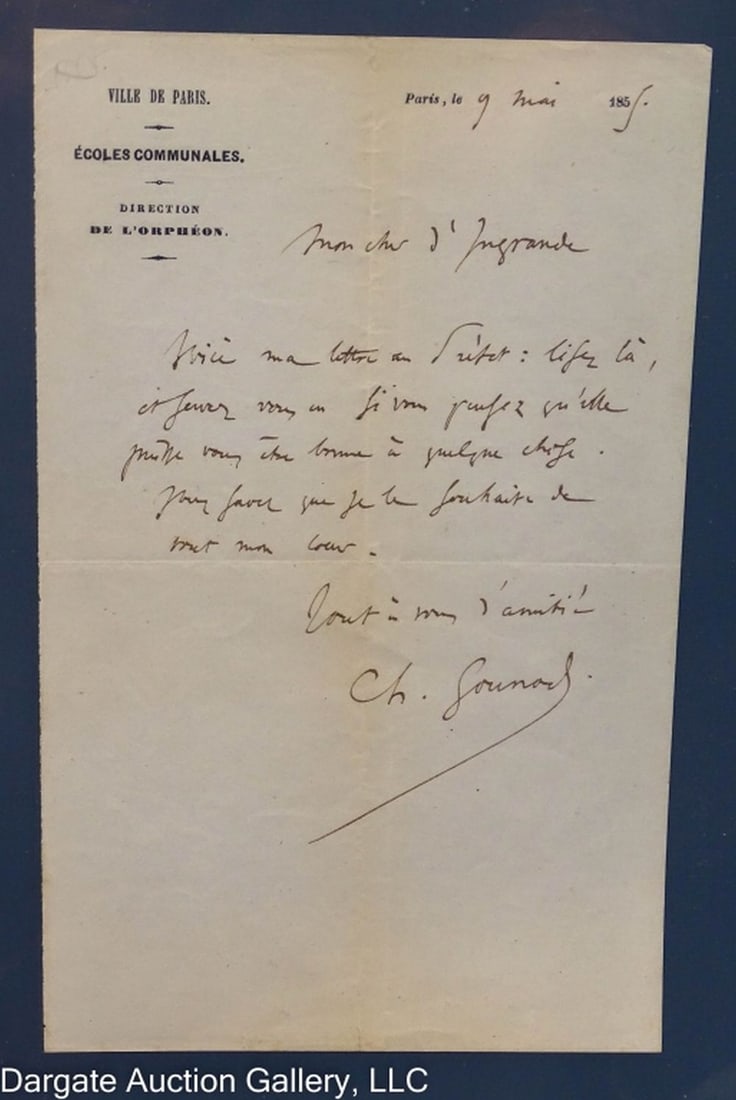 VILLE DE PARIS.
ÉCOLES COMMUNALES.
DIRECTION
DE L'ORPHÉON.
Paris, le 9 mai 1855.
Mon cher d'Ingrande
Voici ma lettre au Préfet : lisez là,
et servez vous en si vous pensez qu'elle
puisse vous être bonne à quelque chose.
Vous savez que je le souhaite de
tout mon coeur.
Tout à vous d'amitié
Ch. Gounod.
Dargate Auction Gallery, LLC